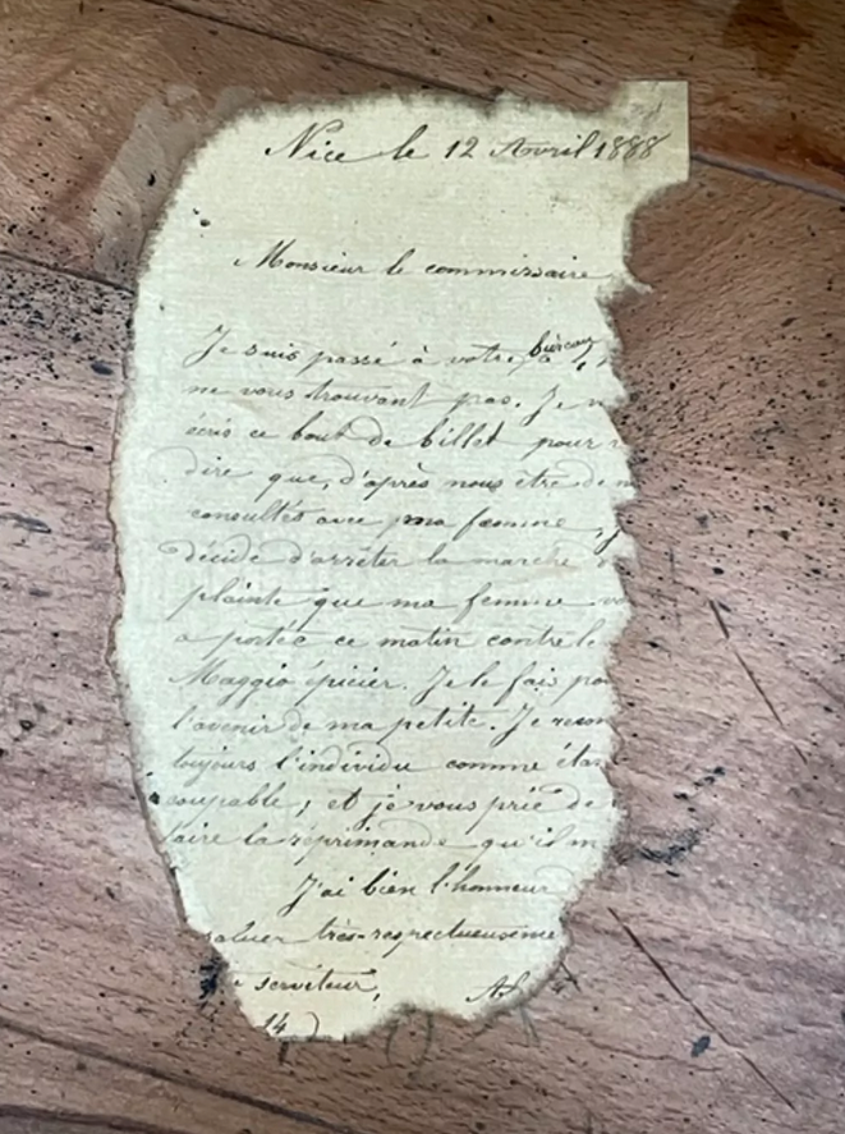 Nice le 12 Avril 1888
Monsieur le commissaire
Je suis passé à votre bureau
ne vous trouvant pas. Je
écris ce bout de billet pour
dire que, d'après nous être
consultés avec ma femme,
décide d'arrêter la marche
plainte que ma femme
a portée ce matin contre le
Maggio épicier. Je le fais
l'avenir de ma petite. Je
toujours l'individu comme
coupable; et je vous prie de
la réprimande qu'il
J'ai bien l'honneur
très-respectueuseme
serviteur,
14